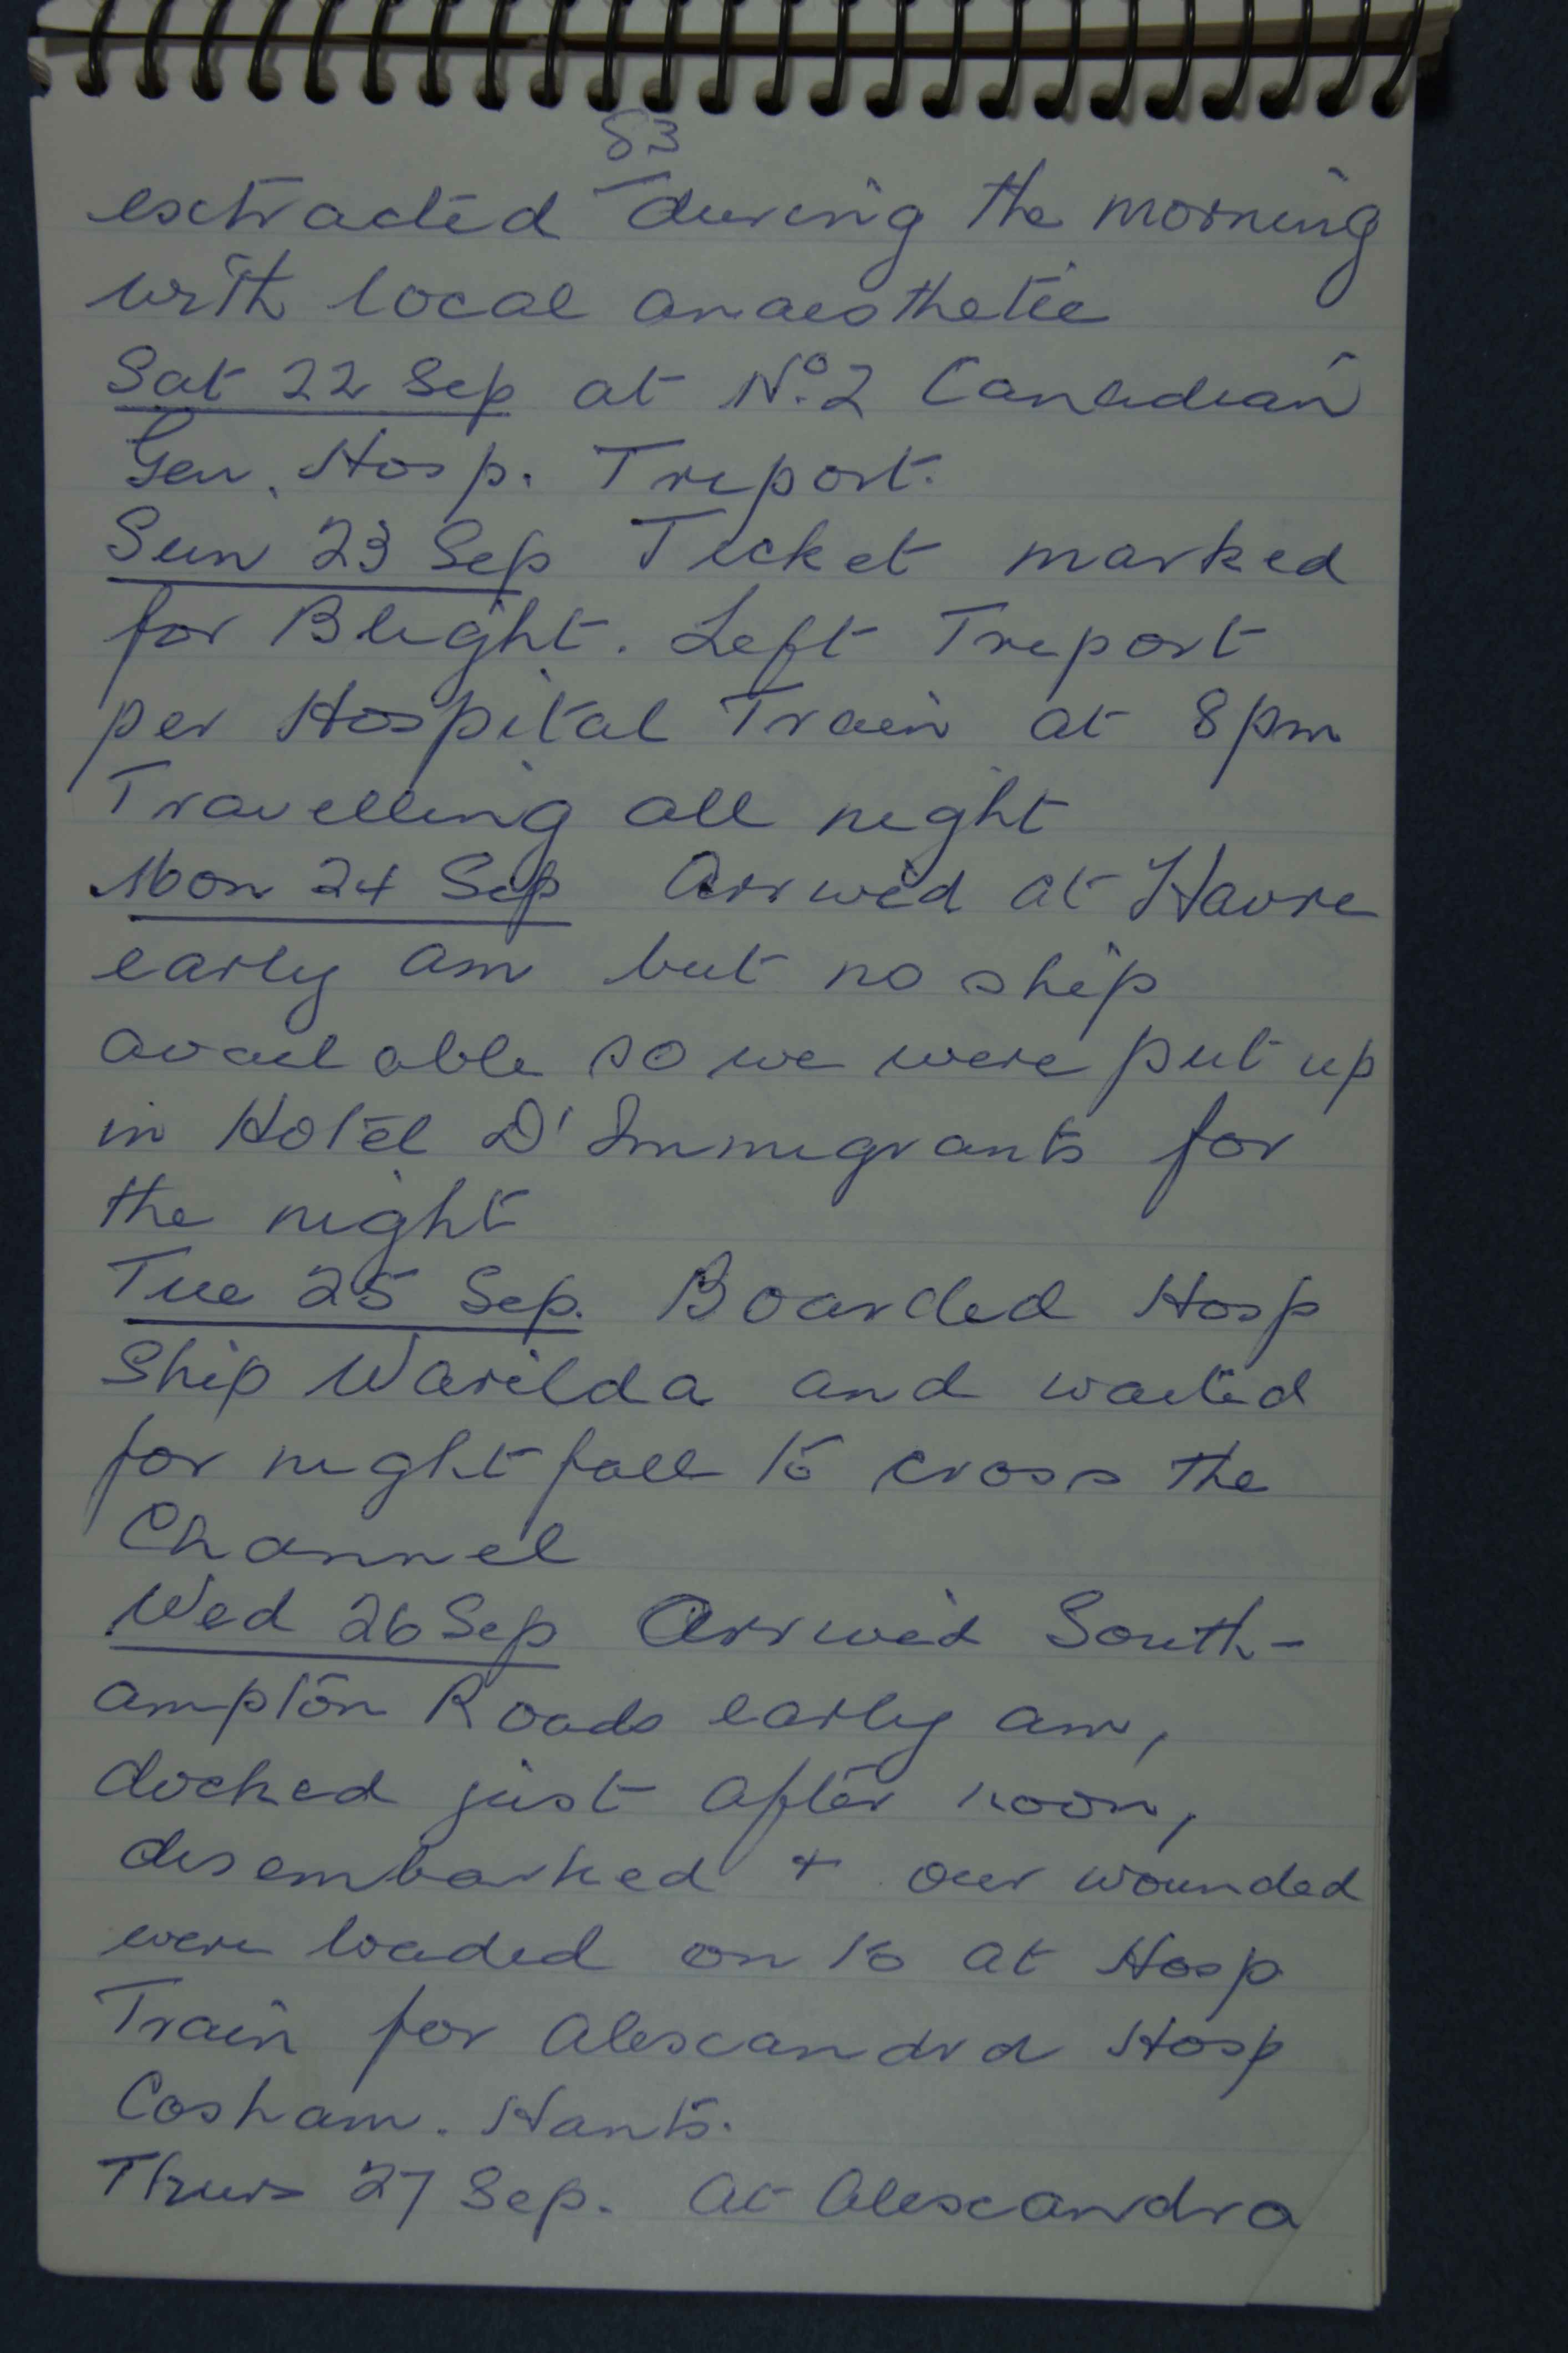 83
extracted during the morning
with local anaesthetic
Sat 22 Sep at No. 2 Canadian
Gen. Hosp. Treport.
Sun 23 Sep Ticket marked
for Blight. Left Treport
per Hospital Train at 8pm
Travelling all night
Mon 24 Sep Arrived at Havre
early am but no ship
available so we were put up
in Hotel D'Immigrants for
the night
Tue 25 Sep. Boarded Hosp
Ship Warilda and waited
for nightfall to cross the
Channel
Wed 26 Sep Arrived South-
ampton Roads early am,
docked just after noon,
disembarked + our wounded
were loaded on to at Hosp
Train for Alexandra Hosp
Cosham. Hants.
Thurs 27 Sep. At Alexandra